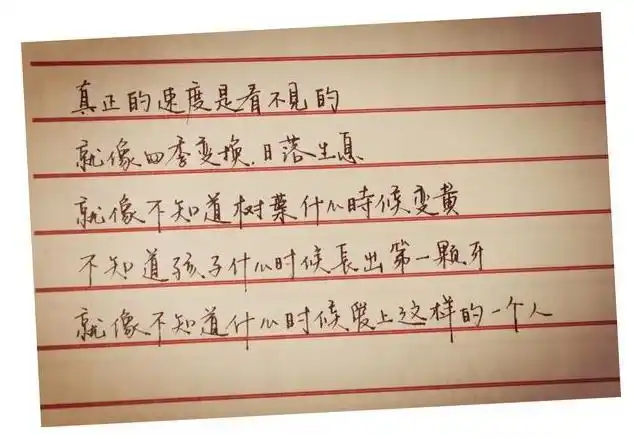 真正的速度是看不見的
就像四季变换.日落生息
就像不知道树葉什么時候变黄
不知道孩子什么时候長出第一顆牙
就像不知道什么时候愛上这样的一个人